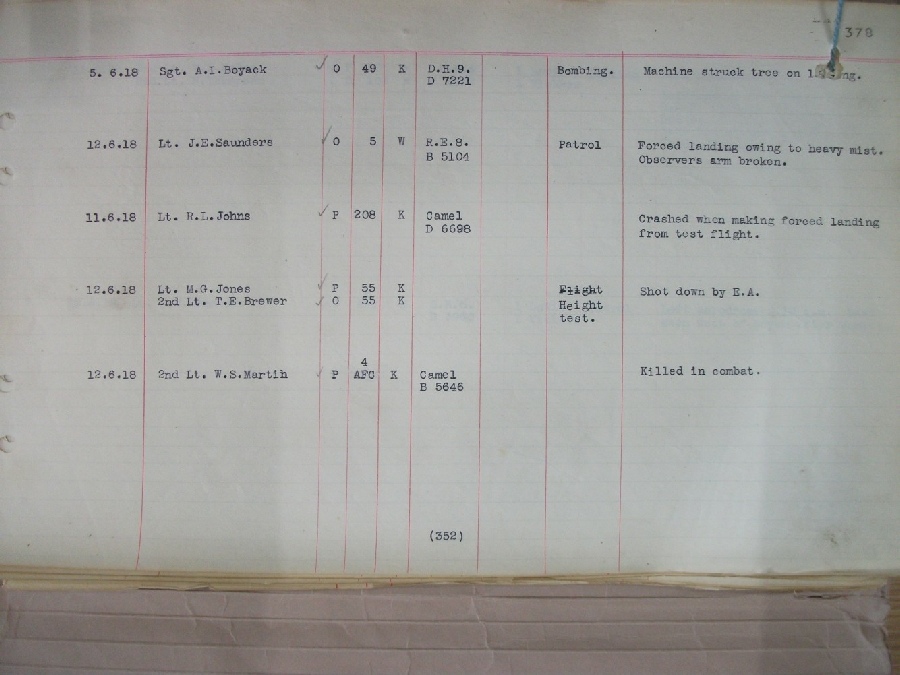 379
5. 6.18 Sgt. A.I.Boyack O 49 K D.H.9. Bombing. Machine struck tree on
D 7221
12.6.18 Lt. J.E.Saunders O 5 W R.E.8. Patrol Forced landing owing to heavy mist.
B 5104 Observers arm broken.
11.6.18 Lt. R.L.Johns P 208 K Camel Crashed when making forced landing
D 6698 from test flight.
12.6.18 Lt. M.G.Jones P 55 K Flight Shot down by E.A.
2nd Lt. T.E.Brewer O 55 K Height
test.
4
12.6.18 2nd Lt. W.S.Martin P AFC K Camel Killed in combat.
B 5645
(352)